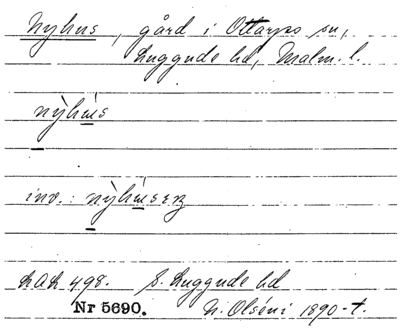 Nyhus, gård i Ottarps sn,
Luggude hd, Malm. l.
nỳhús
inv.: nỳhúsɐʒ
LAL 498. S. Luggude hd
Nr 5690. N. Olséni 1890-t.